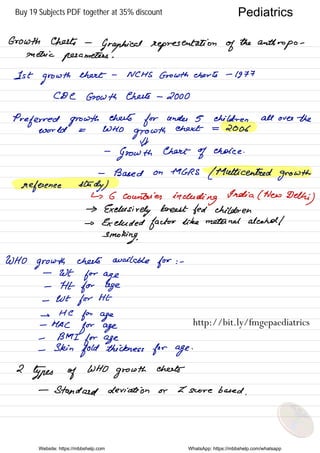 Buy 19 Subjects PDF together at 35% discount
Pediatrics
Growth Charts - Graphical representation of the anthropo-
metric parameters.
1st growth chart - NCHS Growth charts - 1977
CDC Growth Charts - 2000
Preferred growth charts for under 5 children all over the
world = WHO growth chart = 2006
- Growth Chart of choice.
- Based on MGRS (Multicentred growth
reference study)
↳ 6 countries including India (New Delhi)
→ Exclusively breast fed children
→ Excluded factor like maternal alcohol/
smoking.
WHO growth charts available for :-
- Wt for age
- Ht for age
- Wt for Ht
→ HC for age
- MAC for age
- BMI for age
- Skin fold thickness for age.
http://bit.ly/fmgepaediatrics
2 types of WHO growth charts
- Standard deviation or Z score based.
Website: https://mbbshelp.com WhatsApp: https://mbbshelp.com/whatsapp